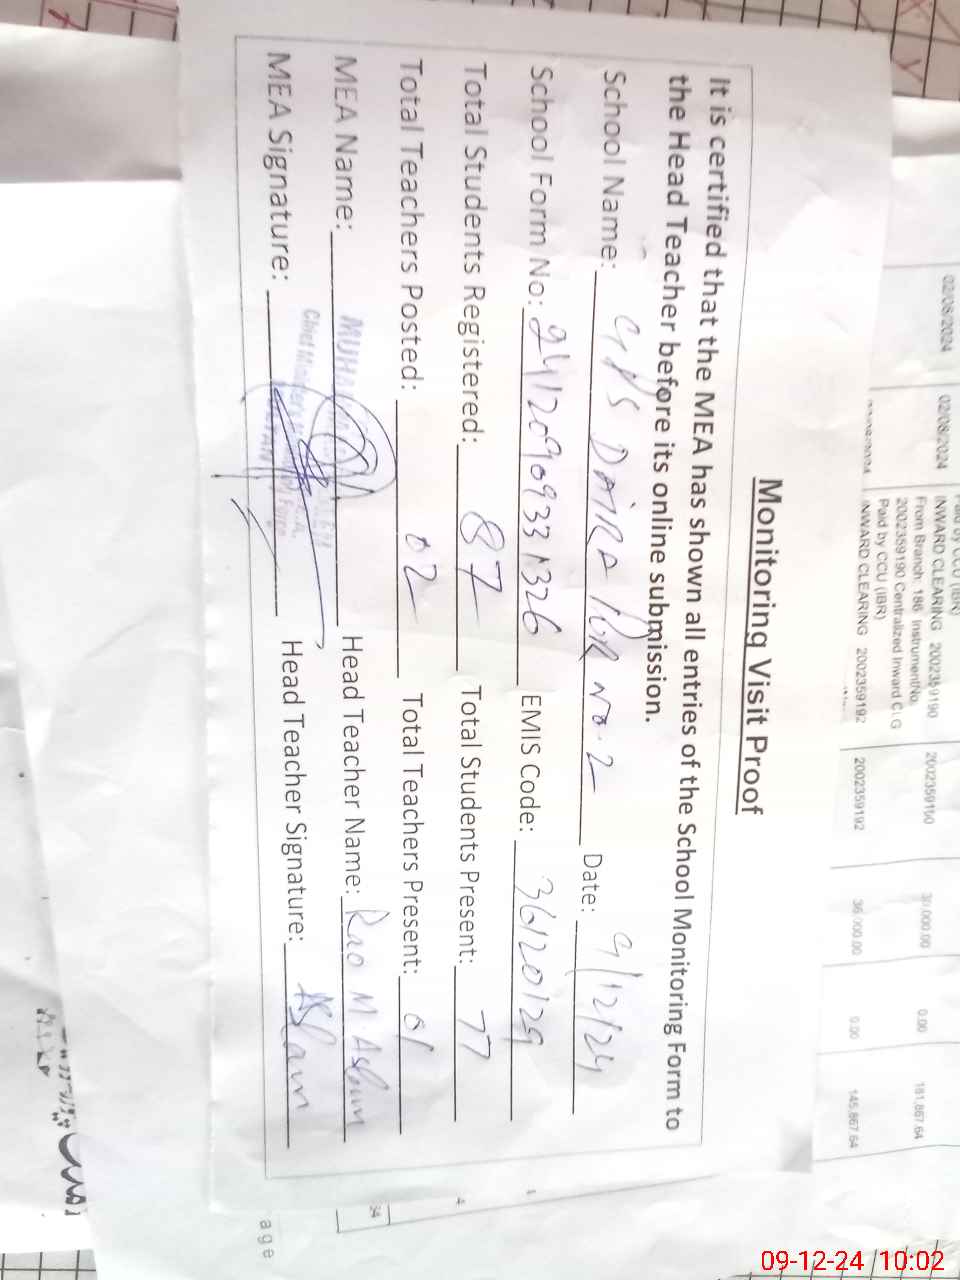 Monitoring Visit Proof
It is certified that the MEA has shown all entries of the School Monitoring Form to
the Head Teacher before its online submission.
School Name: GPS DAIRA PUR NO. 2 Date: 9/12/24
School Form No: 24120909331326 EMIS Code: 36120129
Total Students Registered: 87 Total Students Present: 77
Total Teachers Posted: 02 Total Teachers Present: 01
MEA Name: Head Teacher Name: Rao M. Aslam
MEA Signature: Head Teacher Signature: Aslam
Chief
02/08/2024 02/08/2024 INWARD CLEARING 2002359190 2002359190 30,000.00 0.00 181,867.64
From Branch: 186 InstrumentNo.
2002359190 Centralized Inward CLG
Paid by CCU (IBR)
INWARD CLEARING 2002359192 2002359192 36,000.00 0.00 145,867.64
34
age
09-12-24 10:02